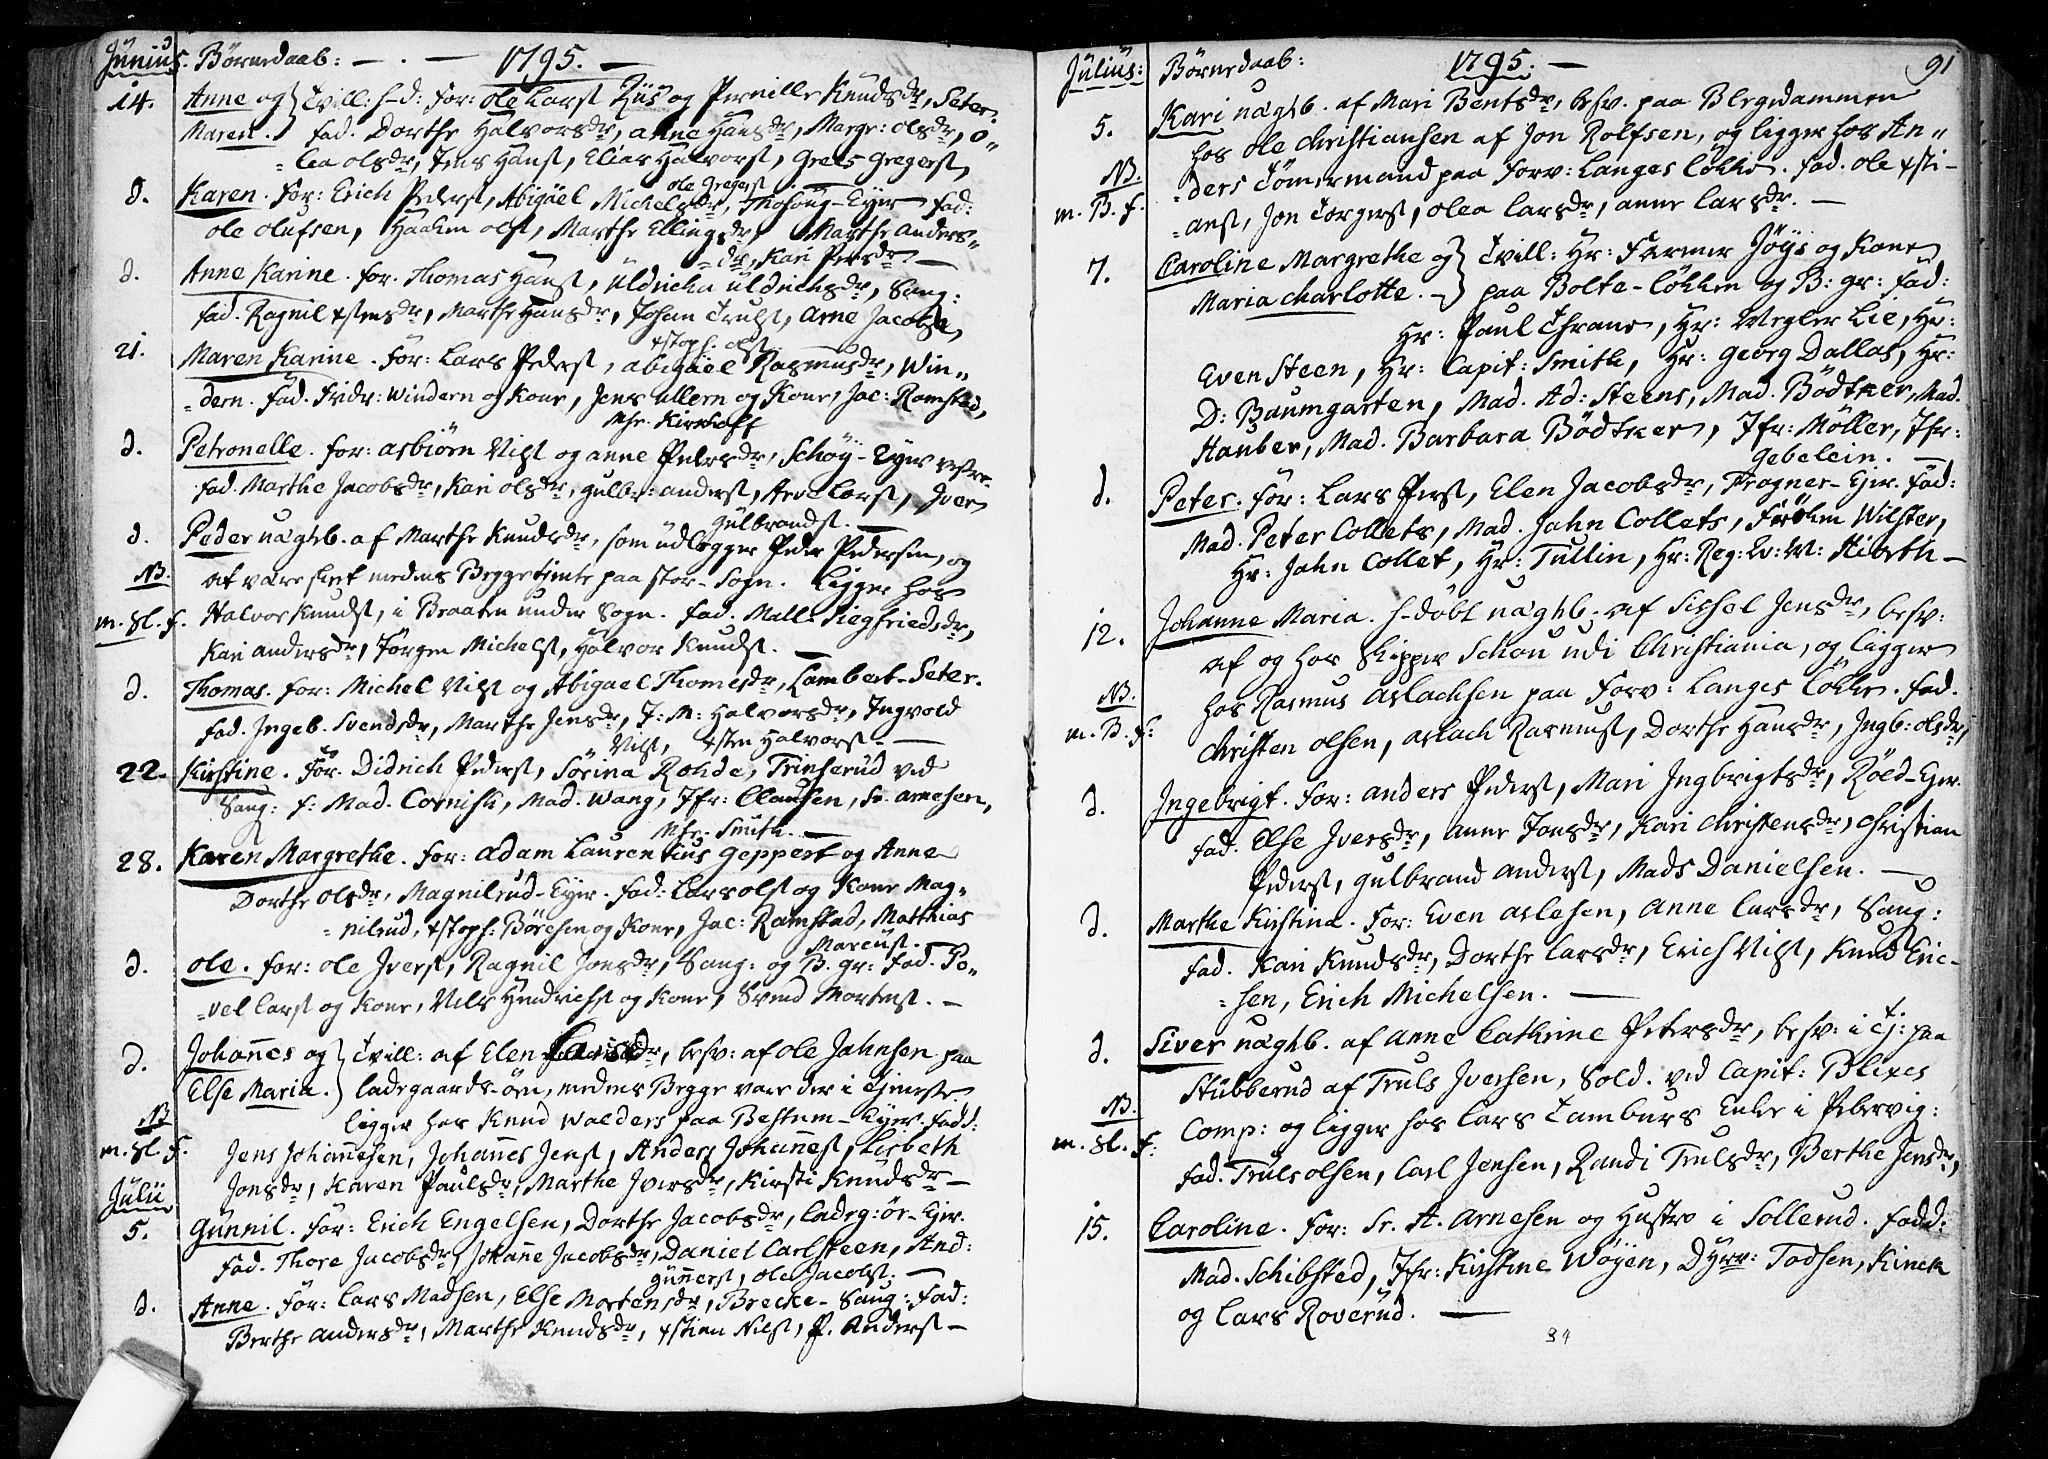 Junius. Børnedaab: — . — 1795. —
14. Anne og } Tvill: h-d: For: Ole Larsf og Pernille Knudsdr, Seter.
Maren. } fad. Dorthe Halvorsdr, Anne Hansdr, Margr: Olsdr, O„
„lea Olsdr, Jens Hansf, Elias Halvorsf, Grels Gregersf,
ole Gregersf
d. Karen. For: Erich Pedersf, Abigael Michelsdr, Eyer fad:
Ole Olufsen, Haaken Olsf, Marthe Ellingsdr, Marthe Anders„
„dr, Kari Persdr —
d. Anne Karine. For. Thomas Hansf, Uldricka Uldrichsdr, Sang:
fad. Ragnil xstensdr, Marthe Hansdr, Johan Trulsf, Arne Jacobsf,
xstoph. Olsf —
21. Maren Karine. For: Lars Pedersf, Abigael Rasmusdr, Win„
„dern. fad. Fridr: Windern og Kone, Jens Ullern og Kone, Jac: Ramstad,
Mfr. Kirkhoff
d. Petronelle. For: Asbiørn Nilsf og Anne Pedersdr, Schøy-Eyer
fad. Marthe Jacobsdr, Kari Olsdr, Gulbr: Andersf, Arve Larsf, Iver
Gulbrandsf. —
d. Peder uægtb. af Marthe Knudsdr, som udlegger Peder Pedersen, og
NB. at være skeet medens Begge tiente paa Stor-Sogn. Ligger hos
m. Sl. f. Halvor Knudsf, i Braaten under Sogn. fad. Mall: Siegfriedsdr,
Kari Andersdr, Jørgen Michelsf, Halvor Knudsf. —
d. Thomas. For: Michel Nilsf og Abigael Thomesdr, Lambert-Seter.
fad. Ingeb. Svendsdr, Marthe Jensdr, J: M: Halvorsdr, Ingvold
Nilsf, xsten Halvorsf. —
22. Kirstine. For. Didrich Pedersf, Sørina Rohde, Trinserud ved
Sang: f: Mad. Cornish, Mad. Wang, Jfr: Clausen, Sr. Arnesen,
Mfr. Smith. —
28. Karen Margrethe. For: Adam Laurentius Geppert og Anne
Dorthe Olsdr, Magnilrud-Eyer. fad: Lars Olsf og Kone Mag„
„nilrud, xstoph: Børesen og Kone, Jac: Ramstad, Matthias
Marcusf.
d. Ole. For: Ole Iversf, Ragnil Jonsdr, Sang: og B. gr: fad. Po„
„vel Larsf og Kone, Nils Hendrichsf og Kone, Svend Mortensf. —
d. Johannes og } Tvill: af Elen Larsdr, besv: af Ole Jahnsen paa
Else Maria. } Ladegaards-øen, medens Begge vare der i Tieneste.
NB ligger hos Knud Walders paa Bestum-Eyer. fadd:
m. Sl. f. Jens Johannesen, Johannes Jensf, Anders Johannesf, Lisbeth
Jonsdr, Karen Paulsdr, Marthe Iversdr, Kirsti Knudsdr —
Julii
5. Gunnil. For: Erich Engelsen, Dorthe Jacobsdr, Ladeg: ør-Eyer.
fad. Thore Jacobsdr, Johanne Jacobsdr, Daniel Carlsteen, And:
Gunnersf, Ole Jacobsf. —
d. Anne. For: Lars Madsen, Else Mortensdr, Brecke-Sang: fad:
Berthe Andersdr, Marthe Knudsdr, xstian Nilsf, P. Andersf —
Julius: Børnedaab: 1795. — 91
5. Kari uægtb. af Mari Bentsdr, besv. paa Blegedammen
hos Ole Christiansen af Jon Rolfsen, og ligger hos An„
NB. „ders Tømermand paa Forv: Langes Løkke. fad. Ole xsti-
m. B. f. „ansf, Jon Torgersf, Olea Larsdr, Anne Larsdr. —
7. Caroline Margrethe og } Tvill: Hr: Farmer Jøys og Kone
Maria Charlotte. — } paa Bolte-Løkken og B: gr: fad:
Hr: Paul Thrane, Hr: Megler Lie, Hr:
Even Steen, Hr: Capit: Smith, Hr: Georg Dallas, Hr:
D: Baumgarten, Mad. Ad: Steens, Mad. Bødtker, Mad.
Hauber, Mad. Barbara Bødtker, Jfr: Møller, Jfr:
Gebelein. —
d. Peter. For: Lars Persf, Elen Jacobsdr, Frogner-Eyer. fad:
Mad. Peter Collets, Mad. Jahn Collets, Frøken Wilster,
Hr: Jahn Collet, Hr: Tullin, Hr: Reg: Qv: M: Hiorth —
12. Johanne Maria. h-døbt uægtb. af Sissel Jensdr, besv:
af og hos Skipper Schou udi Christiania, og ligger
NB. hos Rasmus Aslachsen paa Forv: Langes Løkke. fad.
m. B. f: Christen Olsen, Aslach Rasmusf, Dorthe Hansdr, Ingb: Olsdr,
d. Ingebrigt. For: Anders Pedersf, Mari Ingbrigtsdr, Røed-Eyer.
fad. Else Iversdr, Anne Jonsdr, Kari Christensdr, Christian
Pedersf, Gulbrand Andersf, Mads Danielsen. —
d. Marthe Kirstina. For: Even Aslesen, Anne Larsdr, Sang:
fad. Kari Knudsdr, Dorthe Larsdr, Erich Nilsf, Knud Eric-
„sen, Erich Michelsen. —
d. Siver uægtb. af Anne Cathrine Petersdr, besv: i Tj: paa
Stubberud af Truls Iversen, Sold. ved Capit: Blixes
NB. Comp: og ligger hos Lars Tamburs Enke i Pebervig:
m. Sl. f: fad. Truls Olsen, Carl Jensen, Randi Trulsdr, Berthe Jensdr,
15. Caroline. For: Sr. A. Arnesen og Hustro i Sollerud. fadd:
Mad. Schibsted, Jfr: Kirstine Wøyen, Dyrr: Todsen, Kinck
og Lars Roverud. —
84